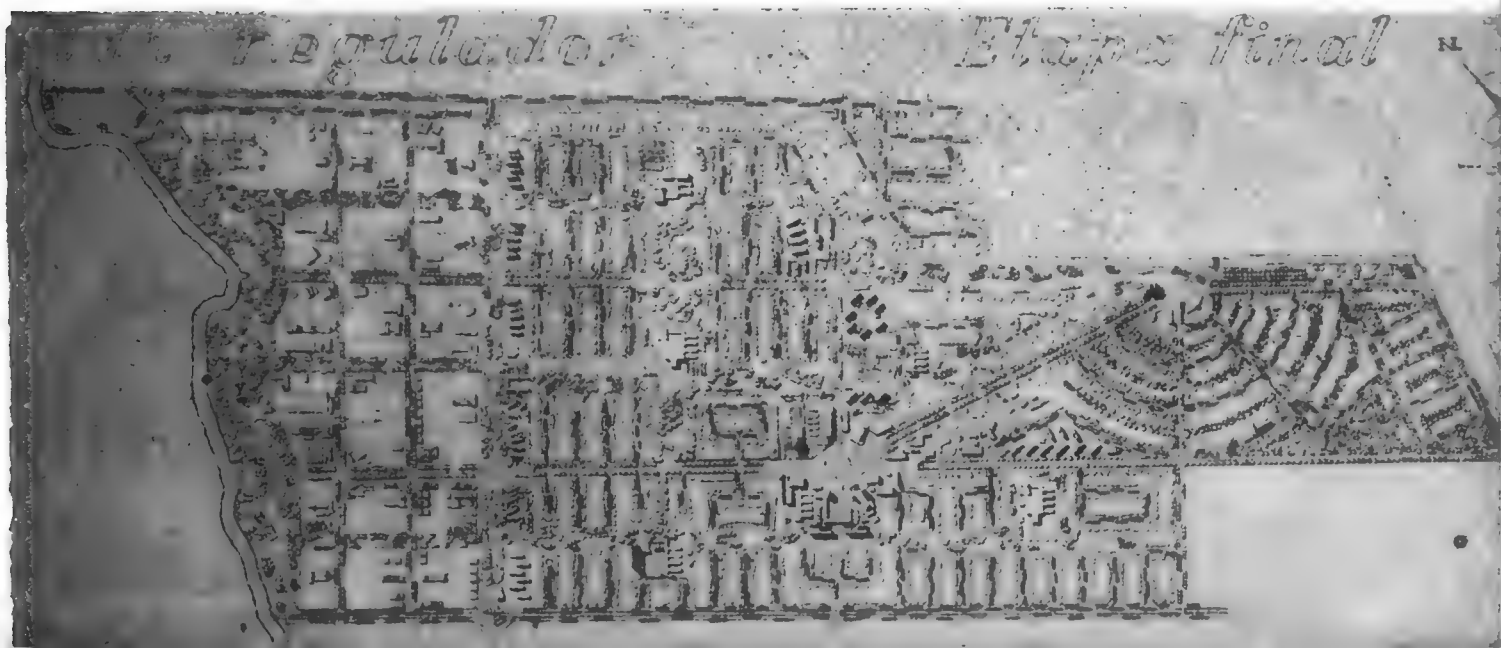 regulador Etapa final
N.